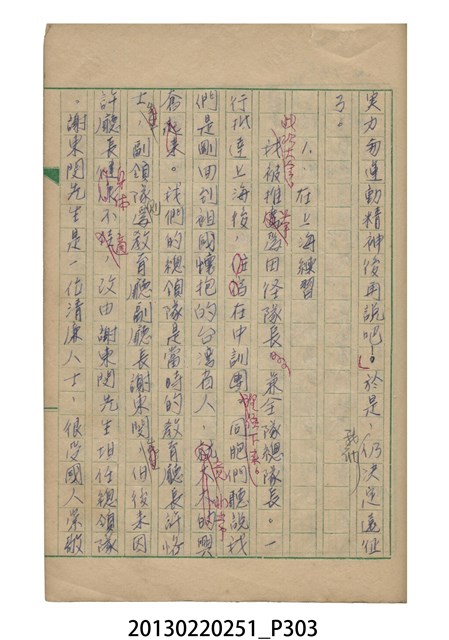 實力和運動精神後再說吧!於是,仍決定遠征
了。
八、在上海練習
我被推舉為田徑隊長兼全隊總隊長。一
行抵達上海後,住宿在中訓團。同胞們聽說我
們是剛回到祖國懷抱的台灣省人,就 的興
奮起來。我們的總領隊是當時的教育廳長許恪
士,副領隊是教育廳副廳長謝東閔,但後來因
許廳長身体不適,改由謝東閔先生担任總領隊
。謝東閔先生是一位清廉人士,很受國人深敬
20130220251_P303